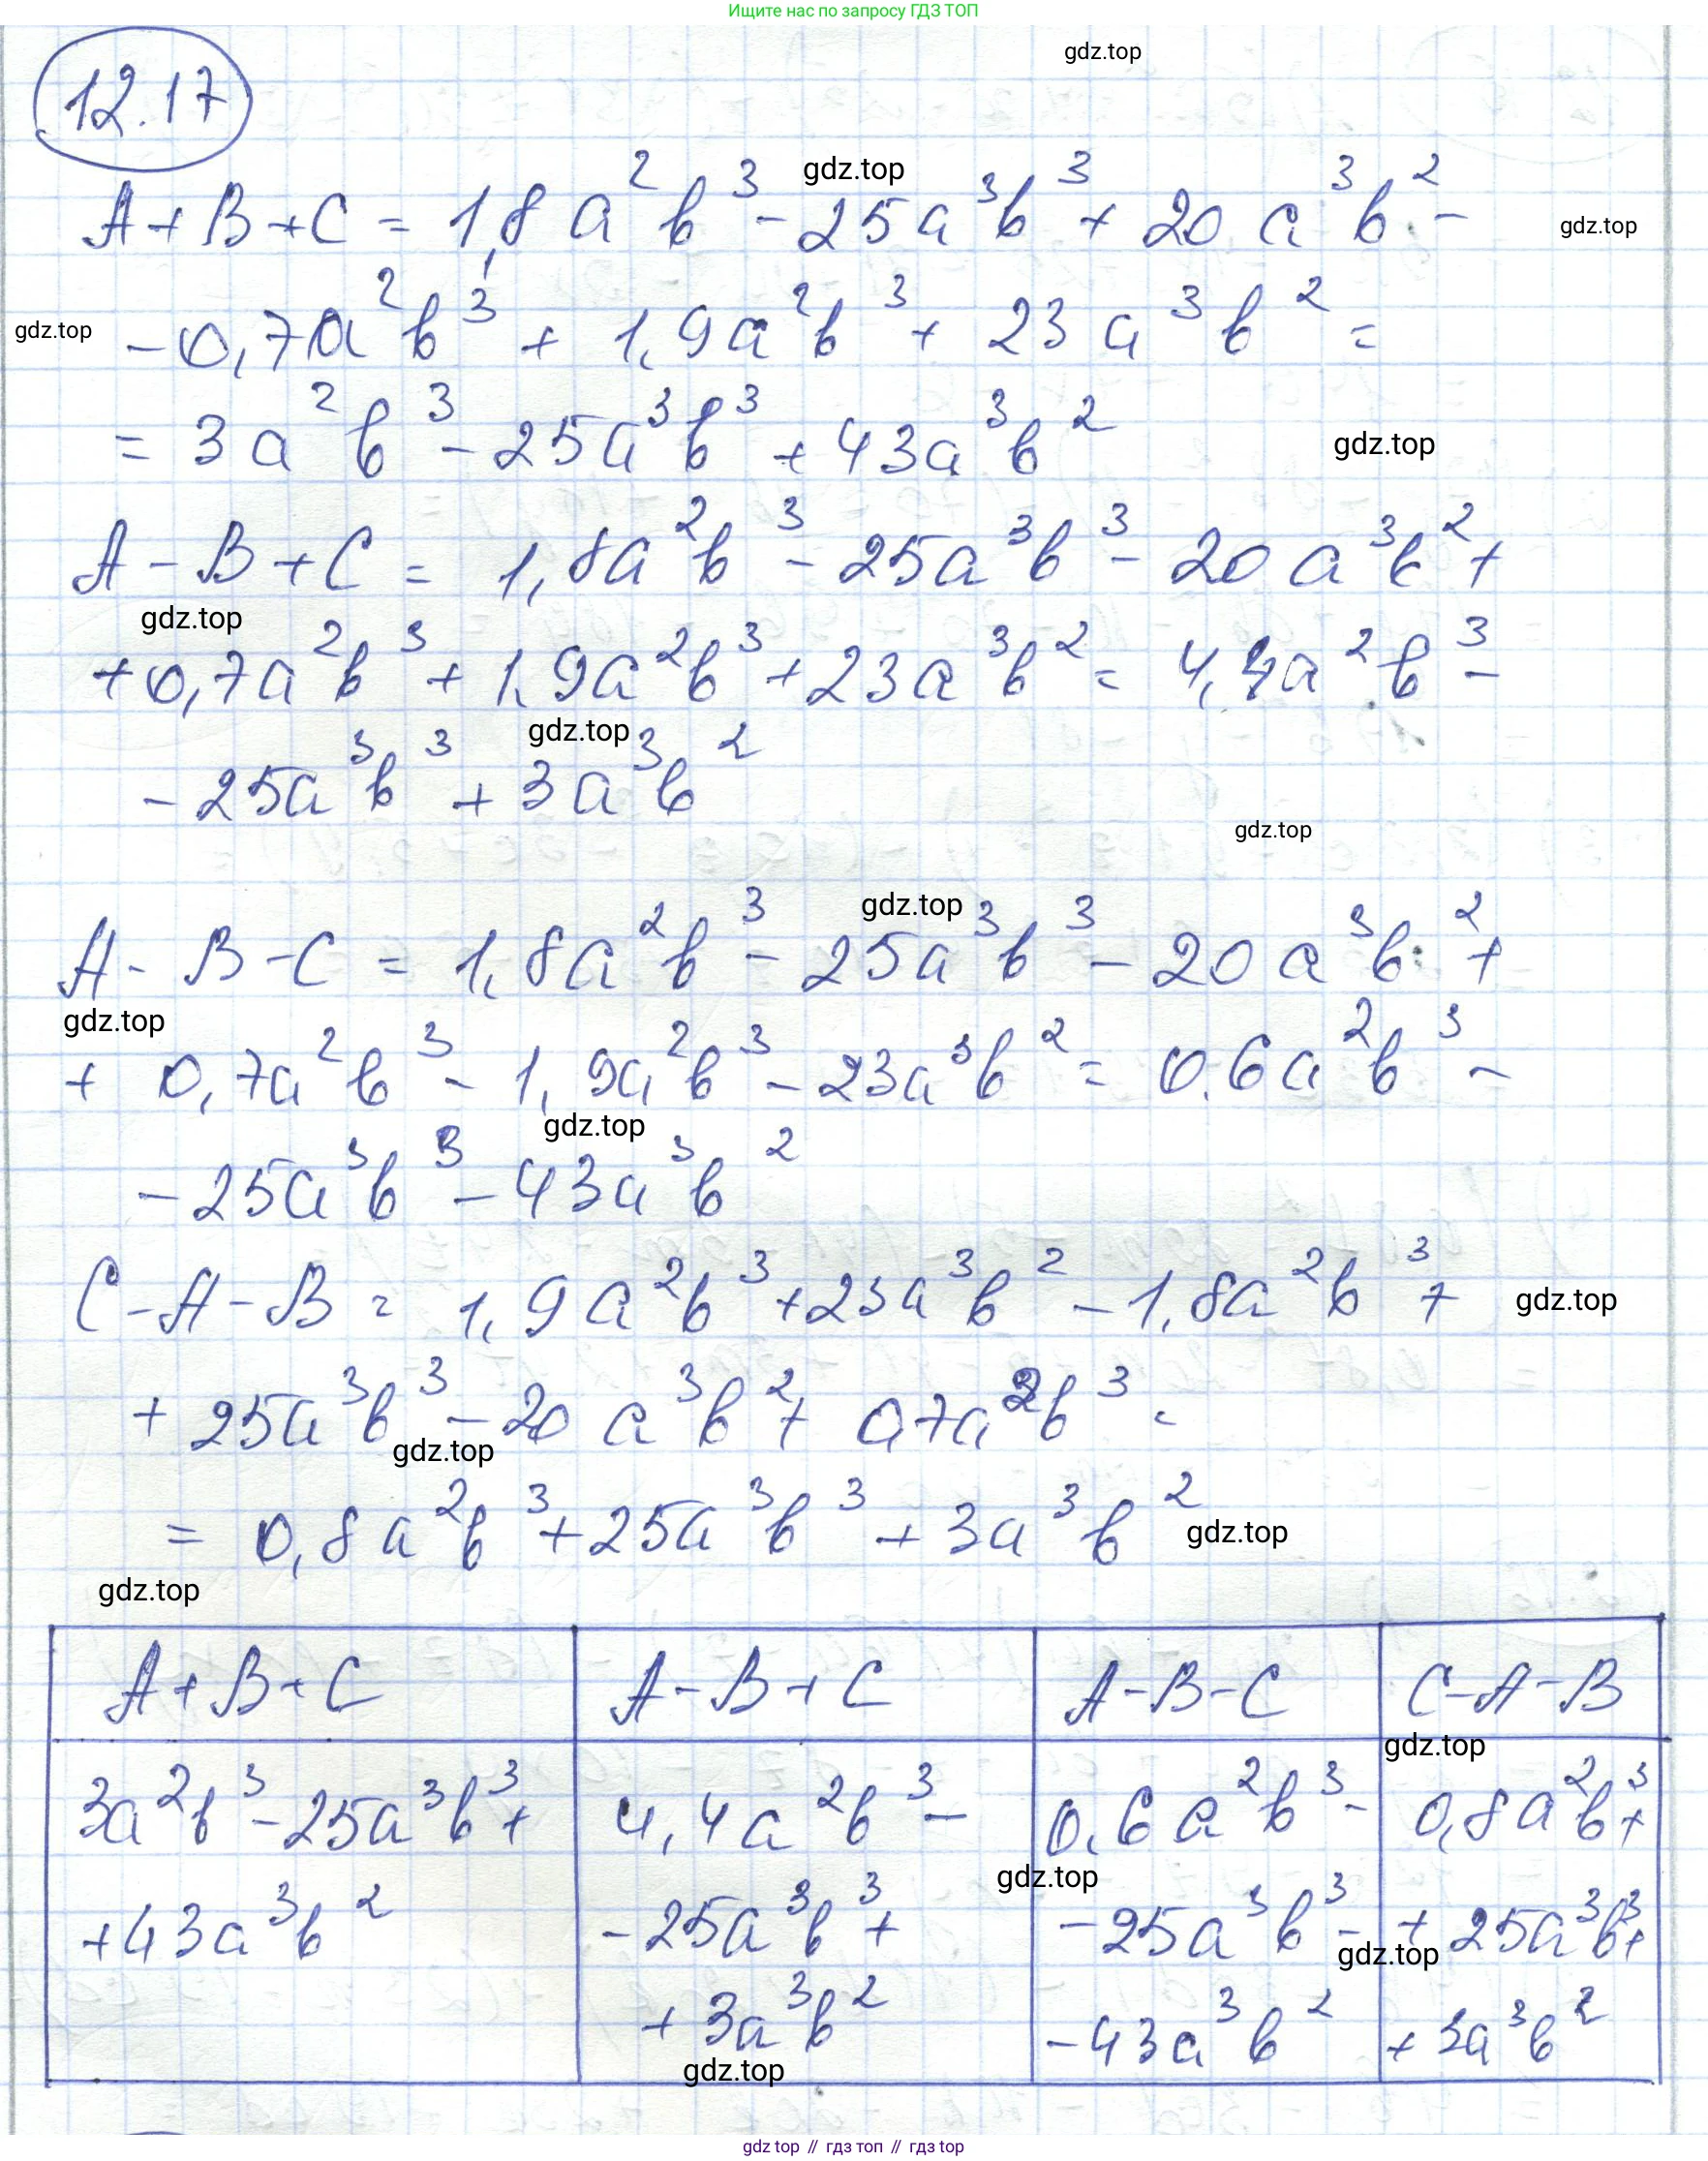 Ищите нас по запросу ГДЗ ТОП
gdz.top
12.17
gdz.top
A+B+C = 1,8a²b³ - 25a³b³ + 20a³b² -
gdz.top
gdz.top
- 0,7a²b³ + 1,9a²b³ + 23a³b² =
= 3a²b³ - 25a³b³ + 43a³b²
gdz.top
A-B+C = 1,8a²b³ - 25a³b³ - 20a³b² +
gdz.top
+0,7a²b³ + 1,9a²b³ + 23a³b² = 4,4a²b³ -
gdz.top
- 25a³b³ + 3a³b²
gdz.top
gdz.top
A-B-C = 1,8a²b³ - 25a³b³ - 20a³b² +
gdz.top
+ 0,7a²b³ - 1,9a²b³ - 23a³b² = 0,6a²b³ -
gdz.top
- 25a³b³ - 43a³b²
C-A-B = 1,9a²b³ + 23a³b² - 1,8a²b³ +
gdz.top
+ 25a³b³ - 20a³b² + 0,7a²b³ =
gdz.top
= 0,8a²b³ + 25a³b³ + 3a³b²
gdz.top
gdz.top
A+B+C A-B+C A-B-C C-A-B
gdz.top
3a²b³ - 25a³b³ + 4,4a²b³ - 0,6a²b³ - 0,8a²b³ +
gdz.top
+43a³b² - 25a³b³ + - 25a³b³ - + 25a³b³ +
gdz.top
+ 3a³b² - 43a³b² + 3a³b²
gdz.top
gdz top // гдз топ // гдз top